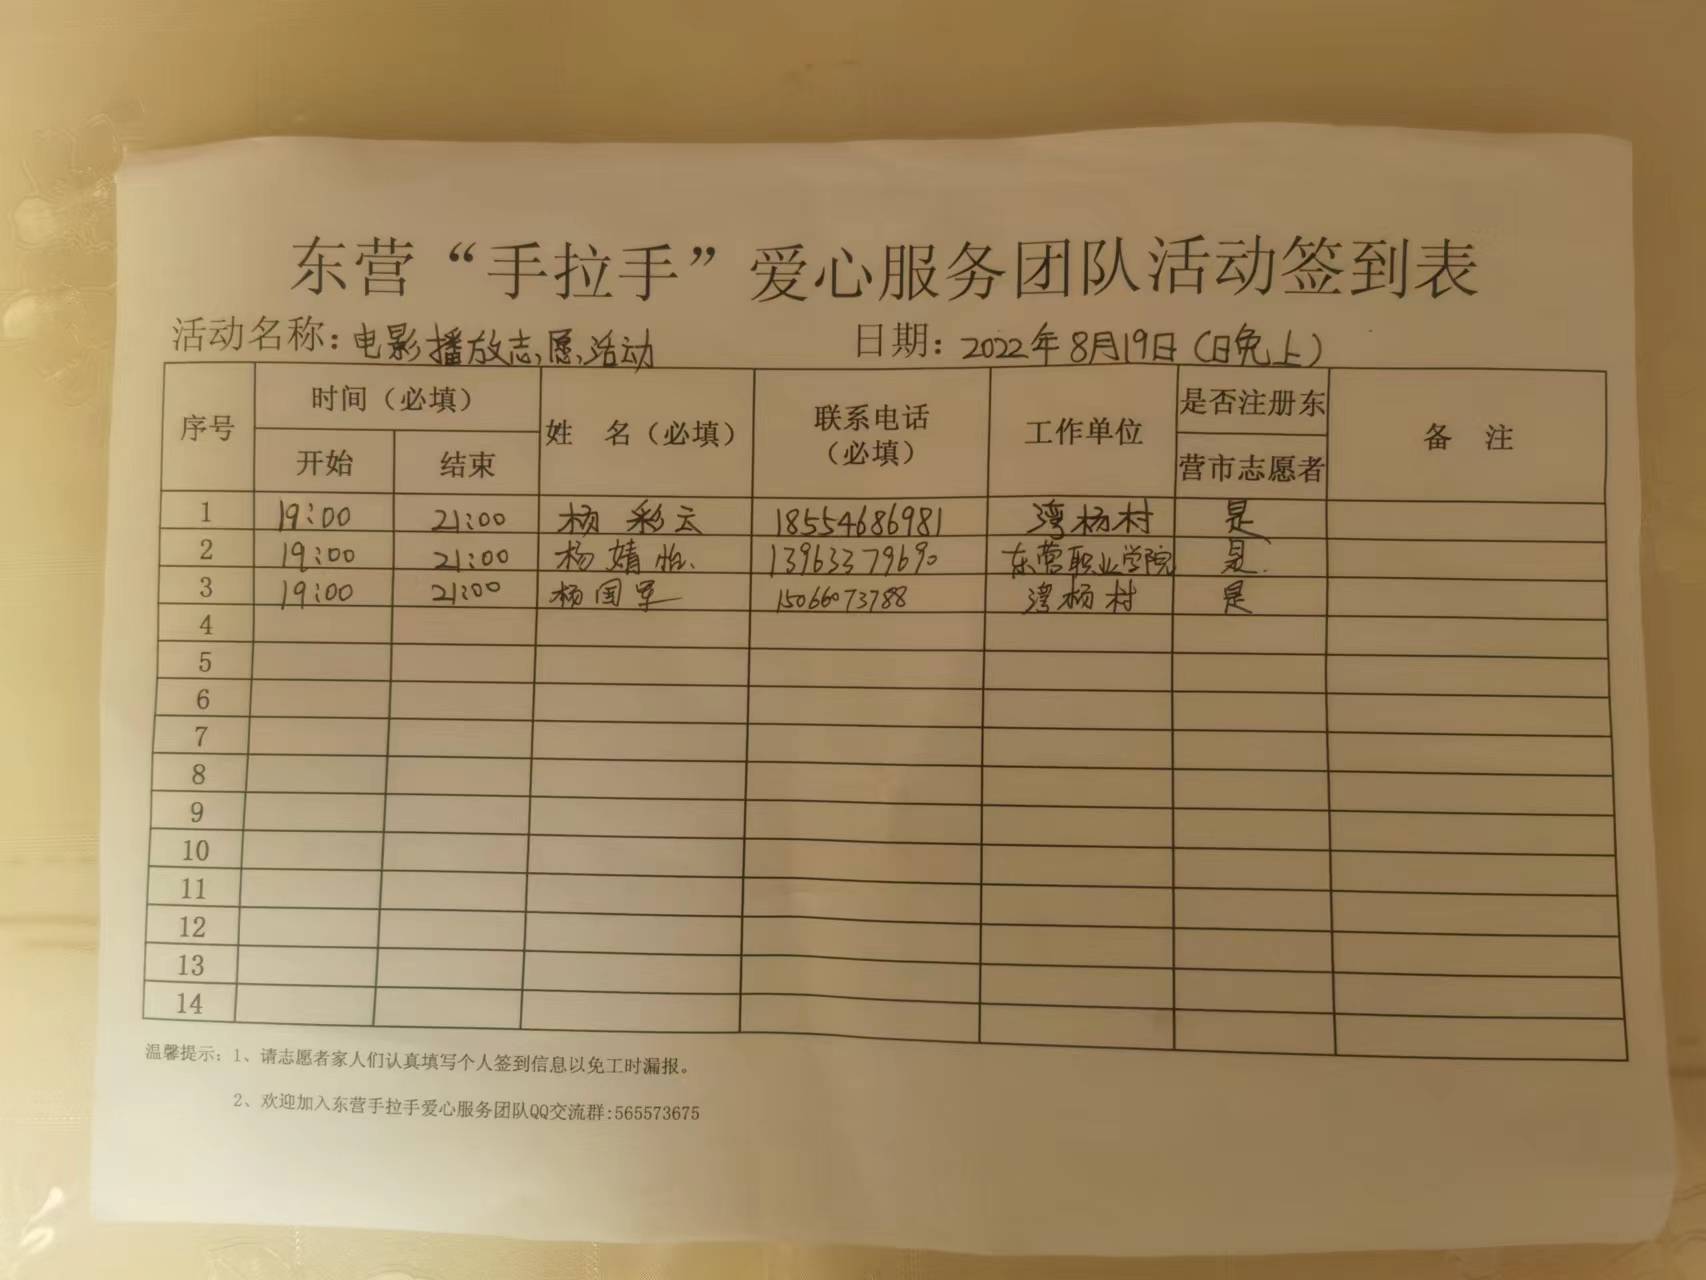 东营“手拉手”爱心服务团队活动签到表
活动名称：电影播放志愿活动 日期：2022年8月19日（晚上）
序号 时间（必填） 姓 名（必填） 联系电话（必填） 工作单位 是否注册东营市志愿者 备 注
开始 结束
1 19:00 21:00 杨彩云 18554686981 湾杨村 是
2 19:00 21:00 杨婧怡 13963379690 东营职业学院 是
3 19:00 21:00 杨国军 15066073788 湾杨村 是
4
5
6
7
8
9
10
11
12
13
14
温馨提示：1、请志愿者家人们认真填写个人签到信息以免工时漏报。
2、欢迎加入东营手拉手爱心服务团队QQ交流群:565573675